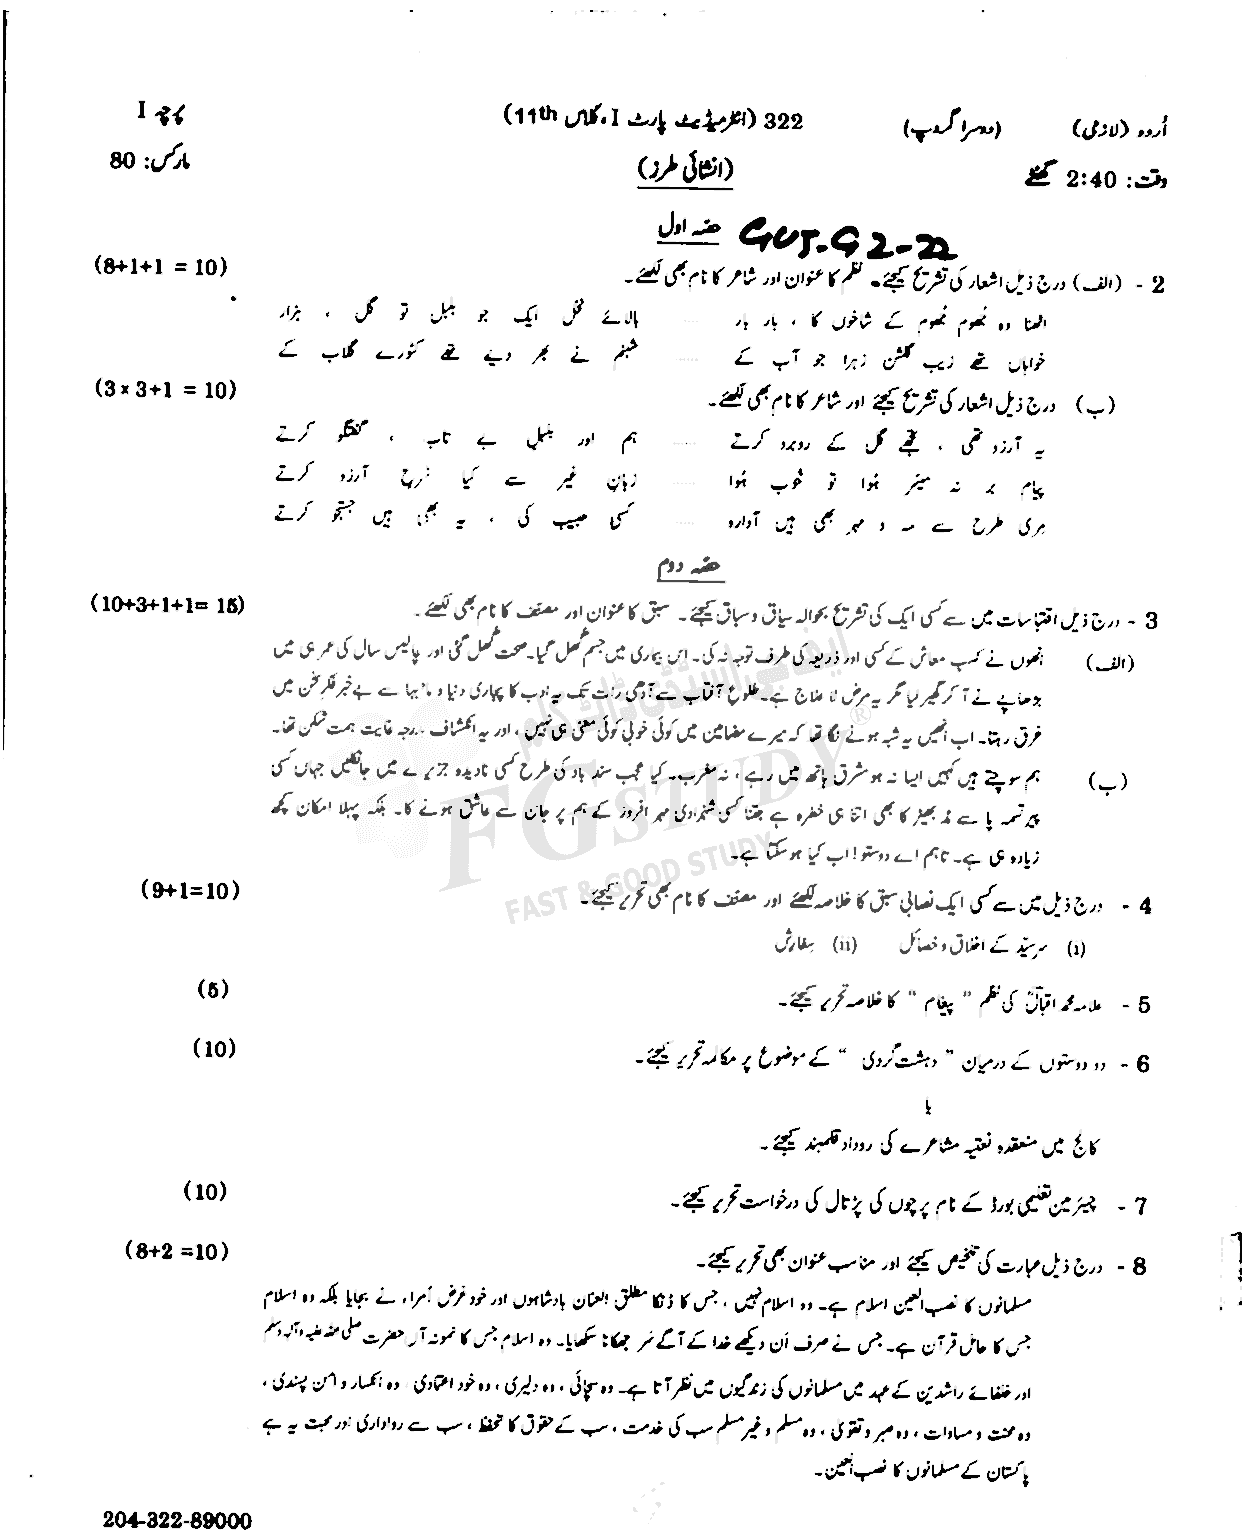 اُردو (لازمی) (دوسرا گروپ) 322 (انٹرمیڈیٹ پارٹ I، کلاس 11th) پرچہ I
وقت: 2:40 گھنٹے (انشائی طرز) مارکس: 80
حصہ اول GUJ-G2-22
2 - (الف) درج ذیل اشعار کی تشریح کیجئے۔ نظم کا عنوان اور شاعر کا نام بھی لکھئے۔ (8+1+1 = 10)
اٹھنا وہ جُھوم جُھوم کے شاخوں کا ، بار بار بالائے نخل ایک جو بلبل تو گل ، ہزار
خواہاں تھے زیب گلشن زہرا جو آب کے شبنم نے بھر دیے تھے کٹورے گلاب کے
(ب) درج ذیل اشعار کی تشریح کیجئے اور شاعر کا نام بھی لکھئے۔ (3×3+1 = 10)
یہ آرزو تھی ، تجھے گل کے روبرو کرتے ہم اور بلبلِ بے تاب ، گفتگو کرتے
پیام بر نہ میسّر ہُوا تو خُوب ہُوا زبانِ غیر سے کیا شرحِ آرزو کرتے
مری طرح سے مہ و مہر بھی ہیں آوارہ کسی حبیب کی ، یہ بھی ہیں جستجو کرتے
حصہ دوم
3 - درج ذیل اقتباسات میں سے کسی ایک کی تشریح بحوالہ سیاق و سباق کیجئے۔ سبق کا عنوان اور مصنف کا نام بھی لکھئے۔ (10+3+1+1= 15)
(الف) انھوں نے کسب معاش کے کسی اور ذریعہ کی طرف توجہ نہ کی۔ اس بیماری میں جسم گُھل گیا۔ صحت گُھل گئی اور چالیس سال کی عمر ہی میں
بڑھاپے نے آ کر گھیر لیا مگر یہ مرض لا علاج ہے۔ طلوع آفتاب سے آدھی رات تک یہ ادب کا پجاری دنیا و مافیہا سے بے خبر فکر سخن میں
غرق رہتا۔ اب انھیں یہ شبہ ہونے لگا تھا کہ میرے مضامین میں کوئی خوبی کوئی معنی ہی نہیں ، اور یہ انکشاف درجہ غایت ہمت شکن تھا۔
(ب) ہم سوچتے ہیں کہیں ایسا نہ ہو مشرق ہاتھ میں رہے ، نہ مغرب۔ کیا عجب سند باد کی طرح کسی نادیدہ جزیرے میں جا نکلیں جہاں کسی
پیر تسمہ پا سے مڈ بھیڑ کا بھی اتنا ہی خطرہ ہے جتنا کسی شہزادی مہر افروز کے ہم پر جان سے عاشق ہونے کا۔ بلکہ پہلا امکان کچھ
زیادہ ہی ہے۔ تاہم اے دوستو! اب کیا ہو سکتا ہے۔
ایف جی اسٹڈی ڈاٹ کام
FG STUDY®
FAST & GOOD STUDY
4 - درج ذیل میں سے کسی ایک نصابی سبق کا خلاصہ لکھئے اور مصنف کا نام بھی تحریر کیجئے۔ (9+1=10)
(i) سرسیّد کے اخلاق و خصائل (ii) سفارش
5 - علامہ محمد اقبالؒ کی نظم " پیغام " کا خلاصہ تحریر کیجئے۔ (5)
6 - دو دوستوں کے درمیان " دہشت گردی " کے موضوع پر مکالمہ تحریر کیجئے۔ (10)
یا
کالج میں منعقدہ نعتیہ مشاعرے کی روداد قلمبند کیجئے۔
7 - چیئرمین تعلیمی بورڈ کے نام پرچوں کی پڑتال کی درخواست تحریر کیجئے۔ (10)
8 - درج ذیل عبارت کی تلخیص کیجئے اور مناسب عنوان بھی تحریر کیجئے۔ (8+2 =10)
مسلمانوں کا نصب العین اسلام ہے۔ وہ اسلام نہیں ، جس کا ڈنکا مطلق العنان بادشاہوں اور خود غرض اُمراء نے بجایا بلکہ وہ اسلام
جس کا حامل قرآن ہے۔ جس نے صرف اَن دیکھے خدا کے آگے سَر جھکانا سکھایا۔ وہ اسلام جس کا نمونہ آں حضرت صلی اللہ علیہ وآلہ وسلم
اور خلفائے راشدین کے عہد میں مسلمانوں کی زندگیوں میں نظر آتا ہے۔ وہ سچائی ، وہ دلیری ، وہ خود اعتمادی ، وہ انکسار و امن پسندی ،
وہ محنت و مساوات ، وہ صبر و تقویٰ ، وہ مسلم و غیر مسلم سب کی خدمت ، سب کے حقوق کا تحفظ ، سب سے رواداری اور محبت یہ ہے
پاکستان کے مسلمانوں کا نصب العین۔
204-322-89000